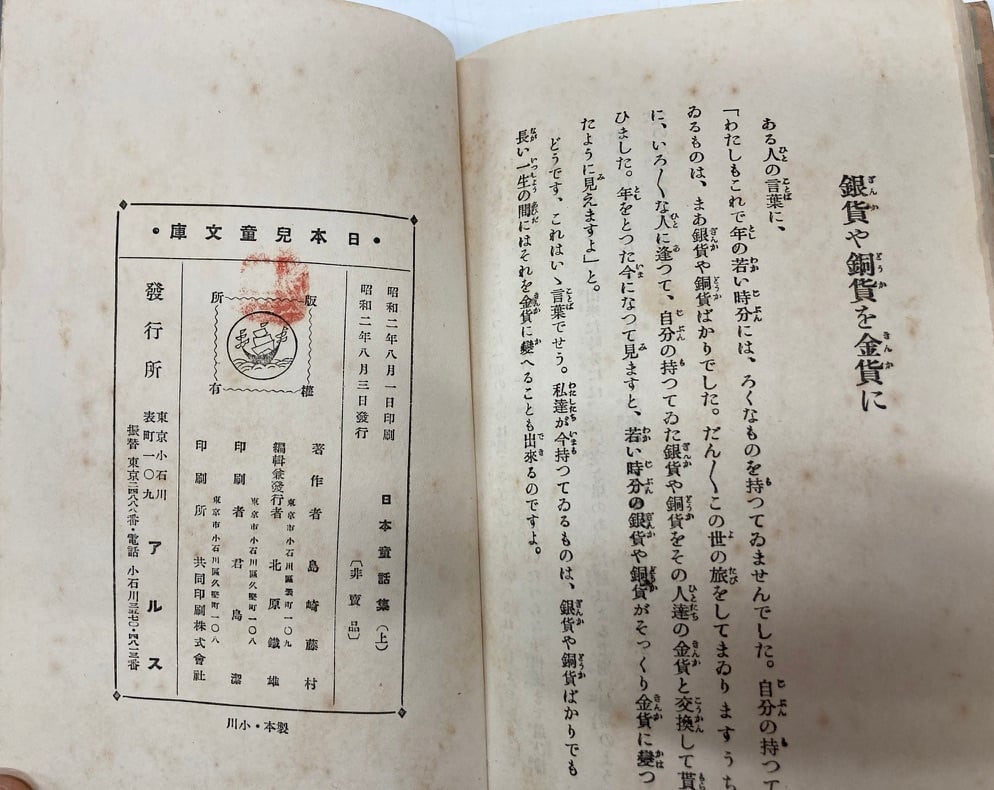 銀貨や銅貨を金貨に
ある人の言葉に、
「わたしもこれで年の若い時分には、ろくなものを持つてゐませんでした。自分の持つて
ゐるものは、まあ銀貨や銅貨ばかりでした。だん〳〵この世の旅をしてまゐりますうち
に、いろ〳〵な人に逢つて、自分の持つてゐた銀貨や銅貨をその人達の金貨と交換して貰
ひました。年をとつた今になつて見ますと、若い時分の銀貨や銅貨がそつくり金貨に變つ
たように見えますよ」と。
どうです、これはいゝ言葉でせう。私達が今持つてゐるものは、銀貨や銅貨ばかりでも
長い一生の間にはそれを金貨に變へることも出來るのですよ。
•日本兒童文庫•
昭和二年八月一日印刷
昭和二年八月三日發行
日本童話集(上)
〔非賣品〕
版權所有
著作者 島崎藤村
東京市小石川區表町一〇九
編輯兼發行者 北原鐵雄
東京市小石川區久堅町一〇八
印刷者 君島潔
東京市小石川區久堅町一〇八
印刷所 共同印刷株式會社
發行所
東京小石川
表町一〇九
アルス
振替東京二四八八番・電話小石川三五七〇・四八一三番
製本・小川